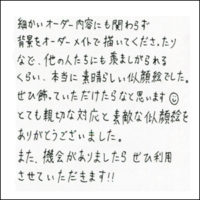 細かいオーダー内容にも関わらず
背景をオーダーメイドで描いてくださったり
など、他の人たちにも羨ましがられる
くらい、本当に素晴らしい似顔絵でした。
ぜひ飾っていただけたらなと思います☺
とても親切な対応と素敵な似顔絵を
ありがとうございました。
また、機会がありましたらぜひ利用
させていただきます!!